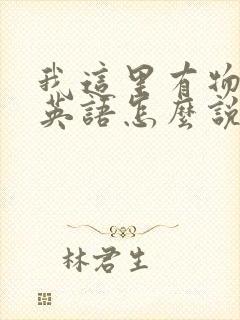 我這里有物
英語怎麼說
林君生